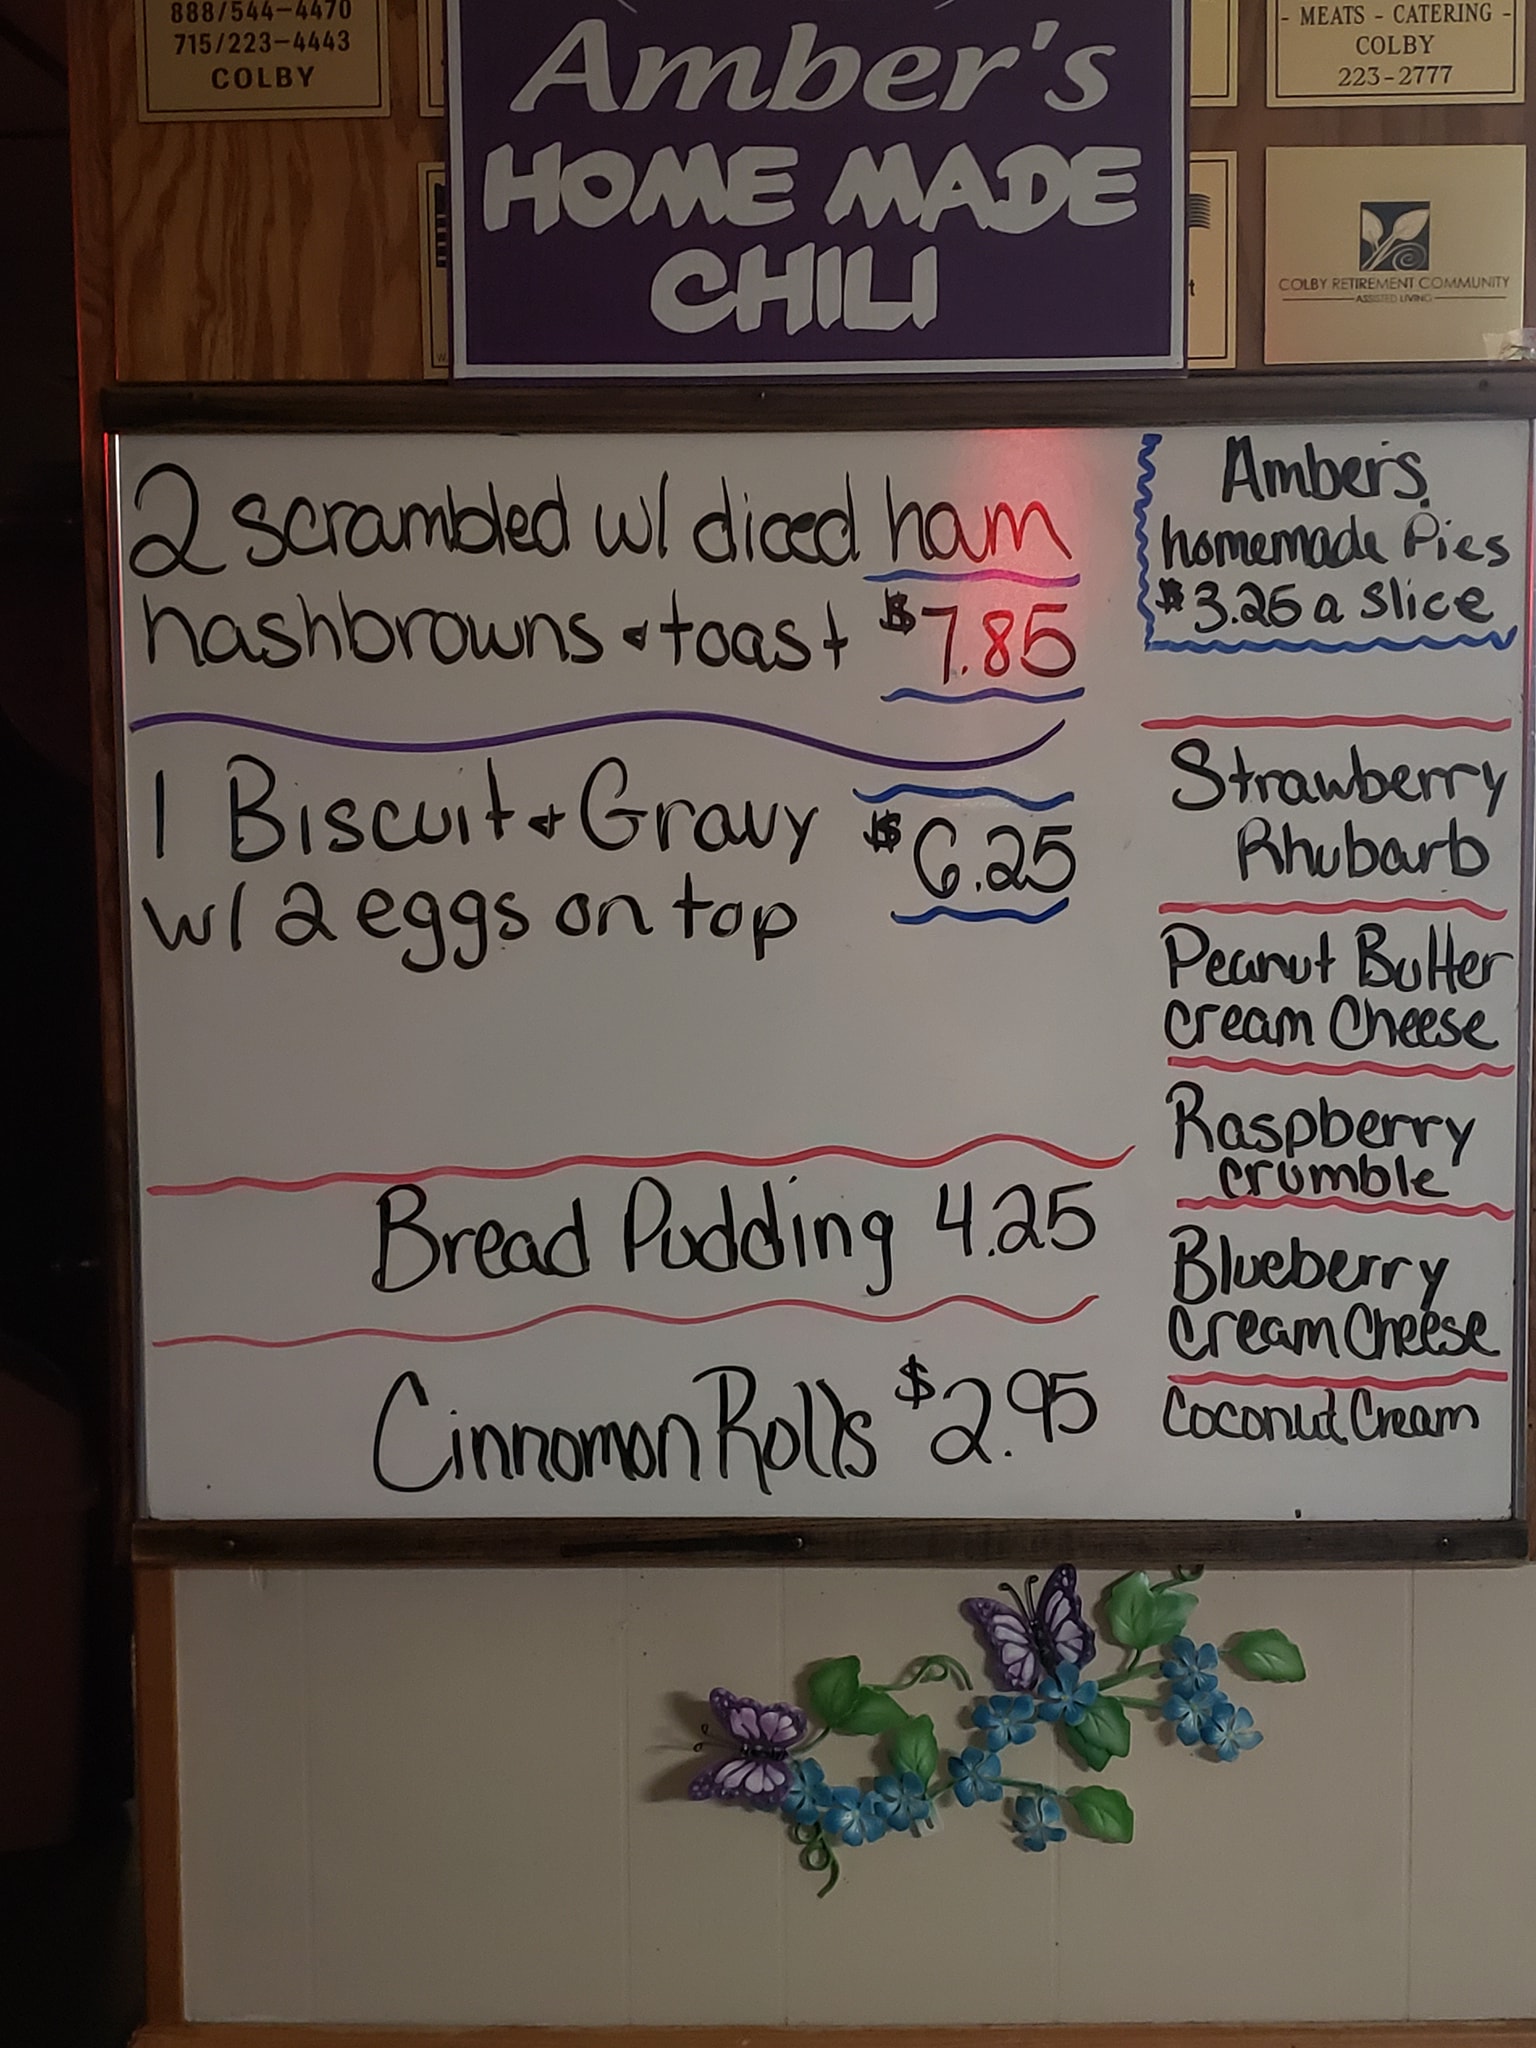 888/544-4470
715/223-4443
COLBY
Amber's
HOME MADE
CHILI
- MEATS - CATERING -
COLBY
223-2777
COLBY RETIREMENT COMMUNITY
ASSISTED LIVING
2 scrambled w/ diced ham
hashbrowns & toast $7.85
1 Biscuit & Gravy $6.25
w/ 2 eggs on top
Bread Pudding 4.25
Cinnomon Rolls $2.95
Amber's
homemade Pies
$3.25 a slice
Strawberry
Rhubarb
Peanut Butter
Cream Cheese
Raspberry
crumble
Blueberry
Cream Cheese
Coconut Cream